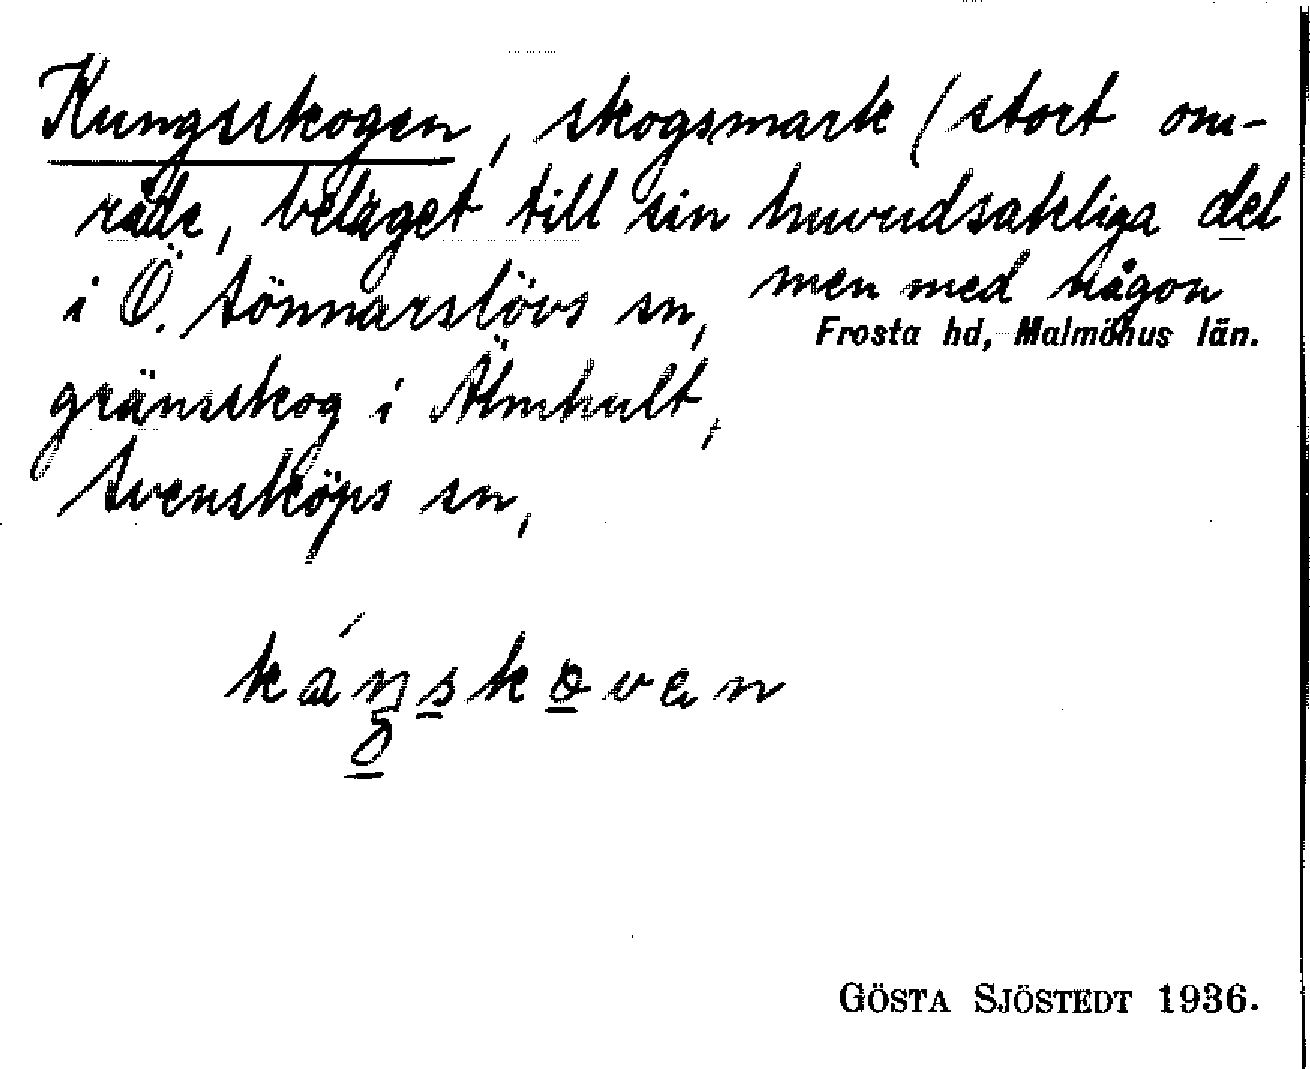 Kungsskogen, skogsmark (stort om-
råde, beläget till sin huvudsakliga del
i Ö. Sönnarslövs sn, men med någon
Frosta hd, Malmöhus län.
gränsskog i Älmhult,
Svensköps sn,
GÖSTA SJÖSTEDT 1936.